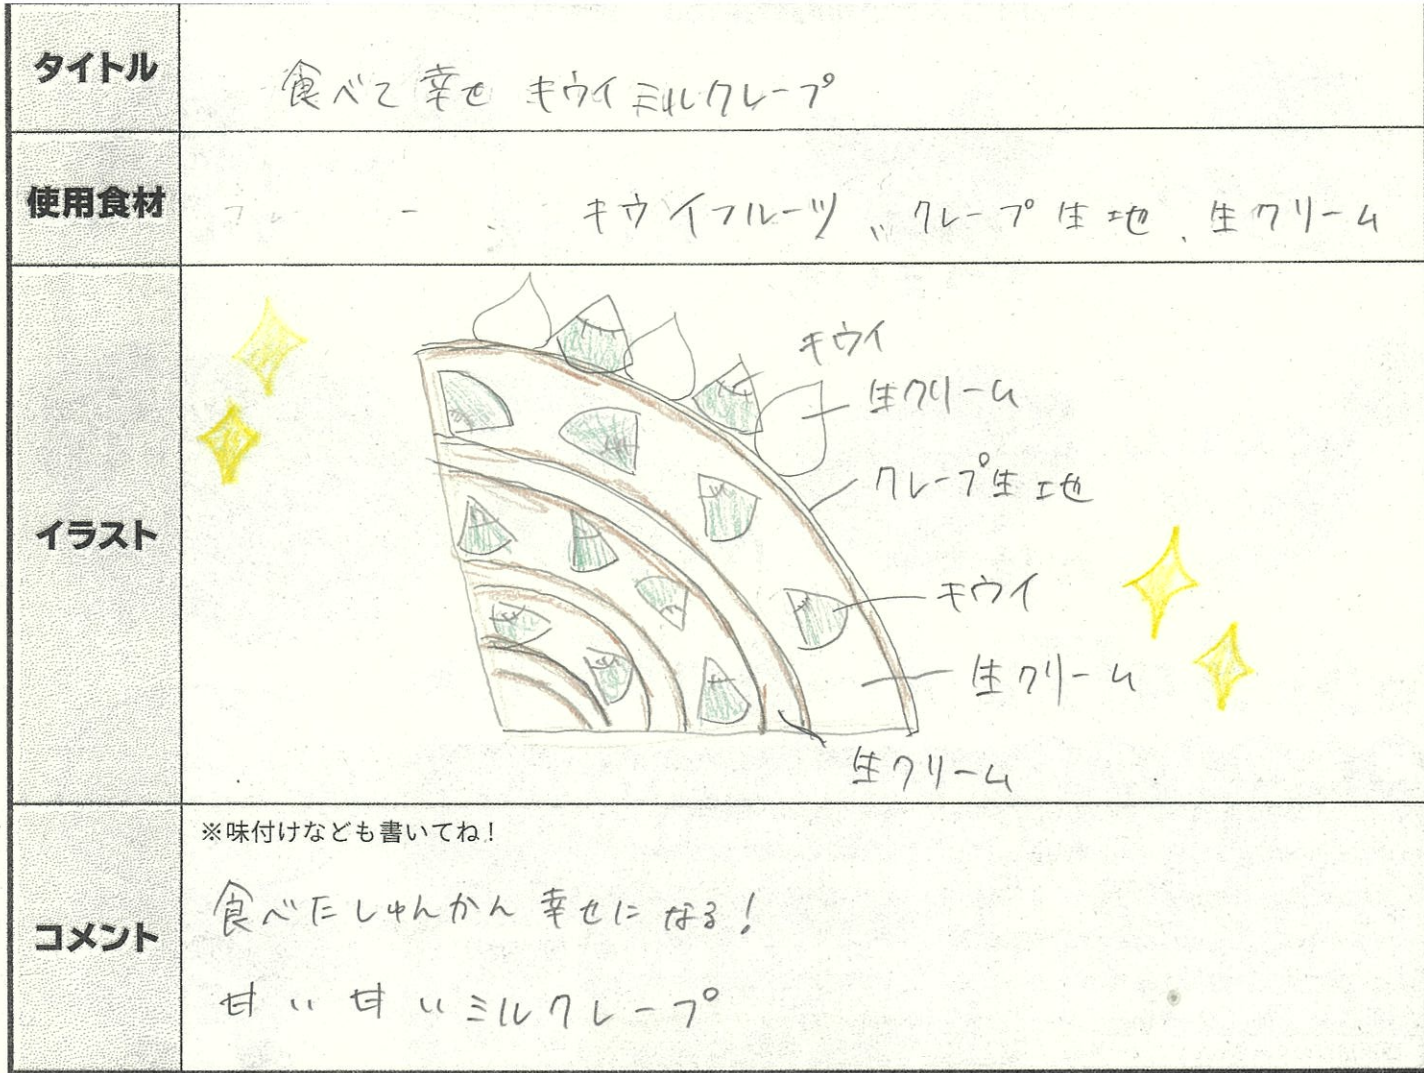 タイトル
食べて幸せ キウイミルクレープ
使用食材
キウイフルーツ、クレープ生地、生クリーム
イラスト
キウイ
生クリーム
クレープ生地
キウイ
生クリーム
生クリーム
コメント
※味付けなども書いてね!
食べたしゅんかん幸せになる!
甘い甘いミルクレープ